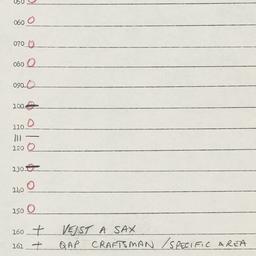 050
060
070
080
090
100
110
111
120
130
140
150
160 + VEJST A SAX
161 + GAP CRAFTSMAN / SPECIFIC AREA